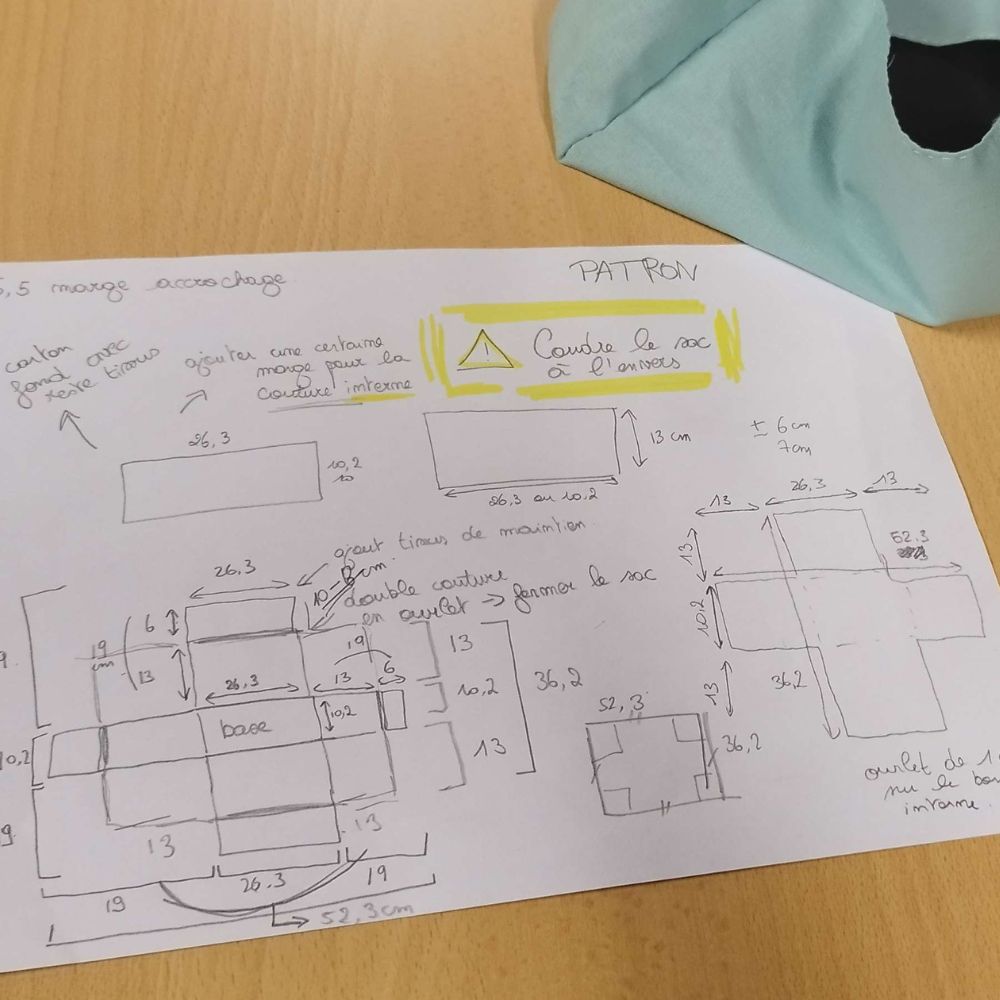 PATRON
5,5 marge accrochage
carton
fond avec
reste tissus
ajouter une certaine
marge pour la
couture interne
! Coudre le sac
à l'envers
26,3
10,2
10
13 cm
26,3 ou 10,2
± 6 cm
7cm
13
26,3
13
52,3
13
10,2
13
36,2
ourlet de 1
sur le bo
interne.
ajout tissus de maintien
10-8cm.
double couture
en ourlet → fermer le sac
26.3
6
19
cm
13
19
26,3
13
6
base
10,2
13
10,2
13
36,2
9
10,2
9
13
13
19
26.3
19
52,3cm
52,3
36,2